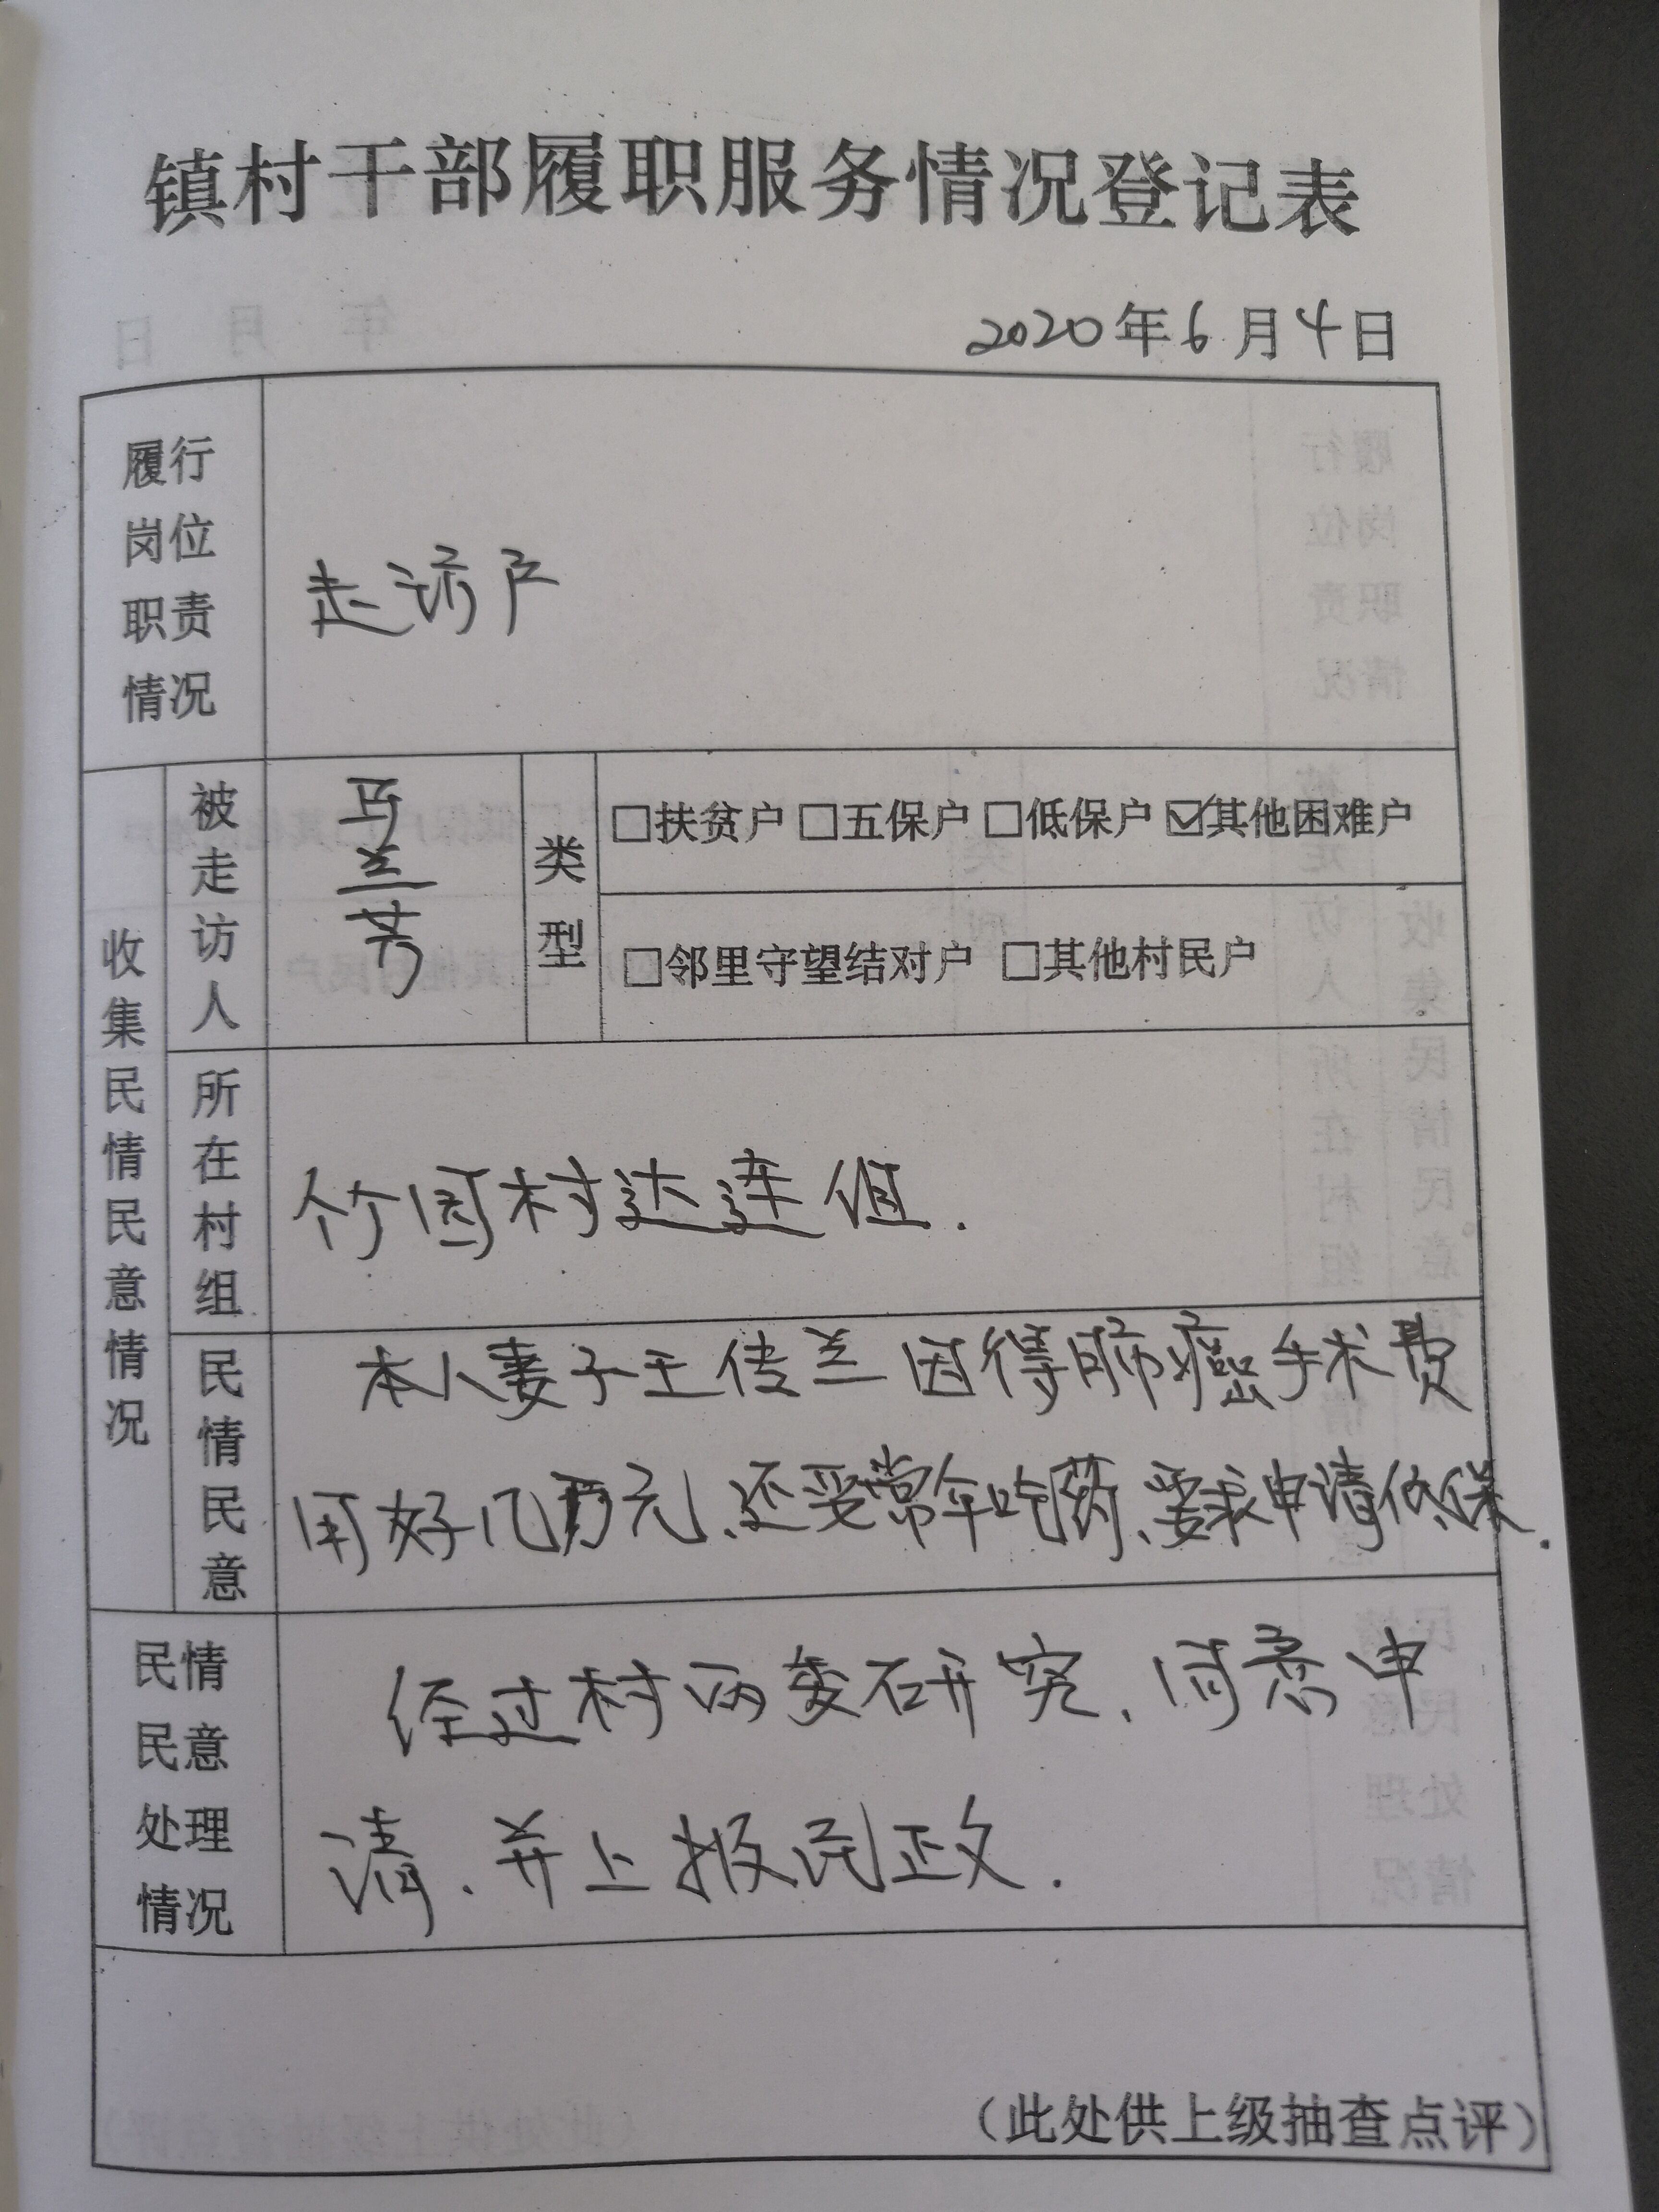 镇村干部履职服务情况登记表
2020年6月4日
履行
岗位
职责
情况
走访户
收集民情民意情况
被走访人
兰芳
类型
□扶贫户 □五保户 □低保户 ☑其他困难户
□邻里守望结对户 □其他村民户
所在村组
竹园村达连组.
民情民意
本人妻子王传兰因得肺癌手术费
用好几万元、还要常年吃药、要求申请低保.
民情
民意
处理
情况
经过村两委研究、同意申
请、并上报民政.
（此处供上级抽查点评）